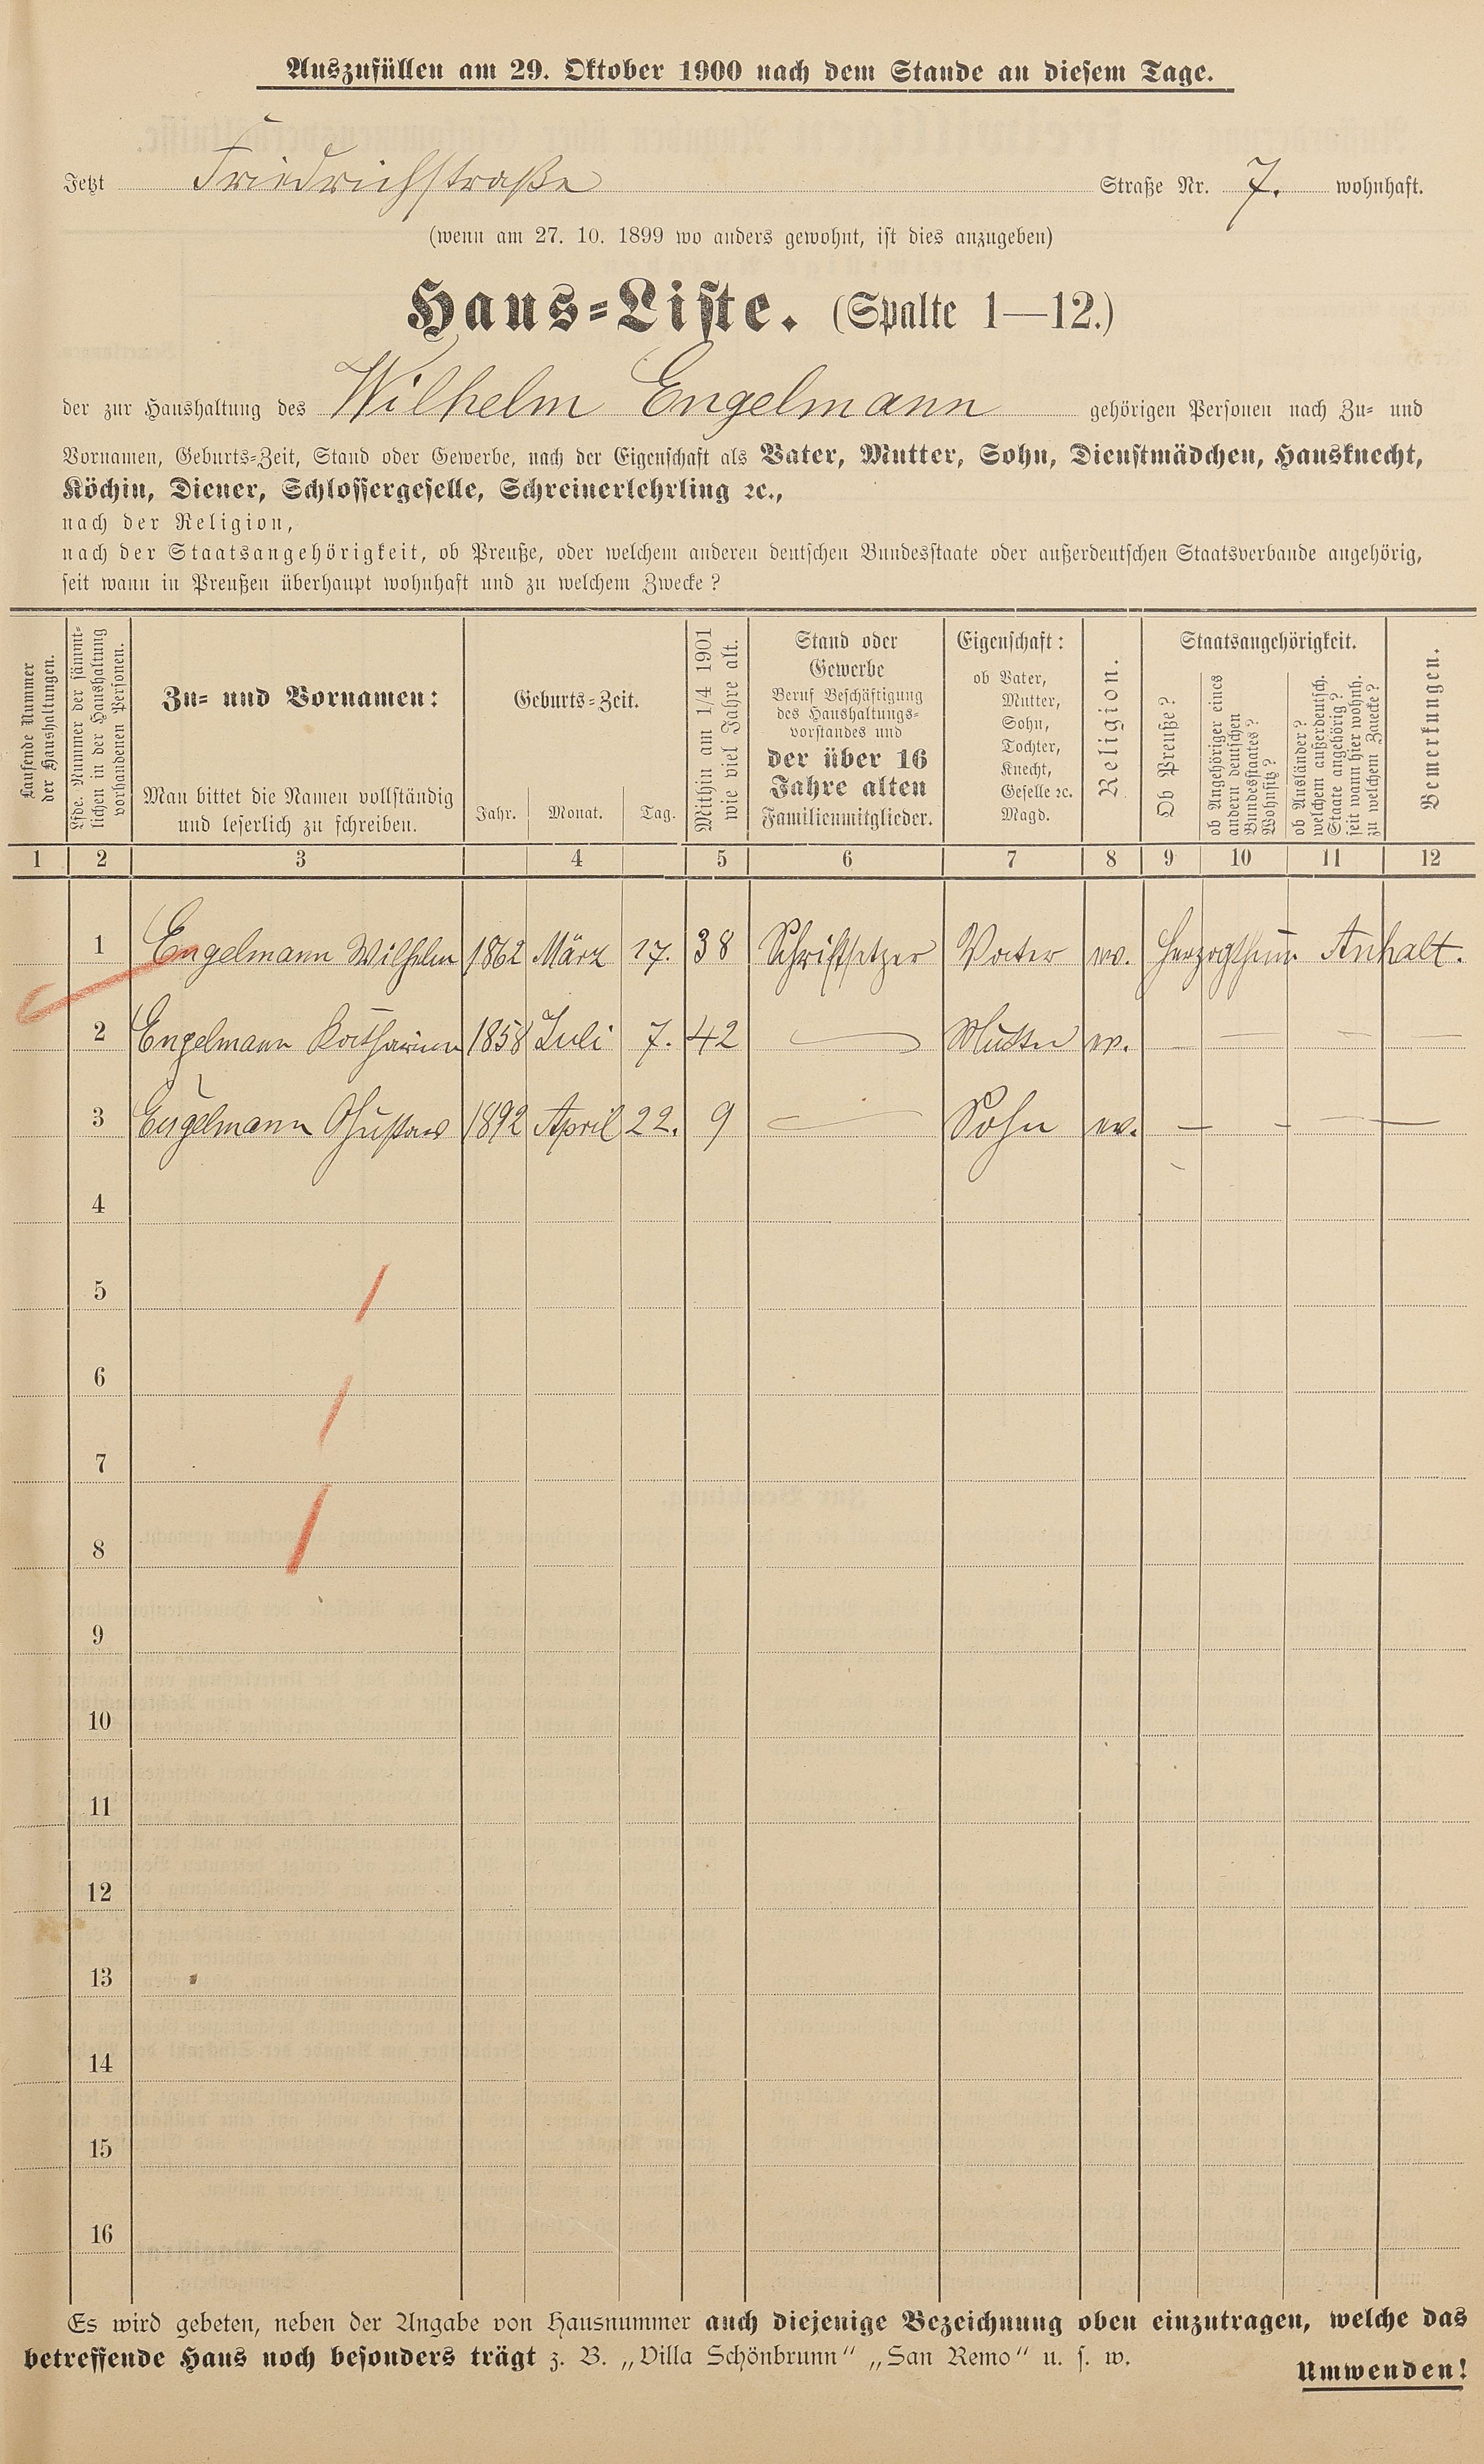 Auszufüllen am 29. Oktober 1900 nach dem Stande an diesem Tage.
Jetzt Friedrichstraße Straße Nr. 7. wohnhaft.
(wenn am 27. 10. 1899 wo anders gewohnt, ist dies anzugeben)
Haus-Liste. (Spalte 1—12.)
der zur Haushaltung des Wilhelm Engelmann gehörigen Personen nach Zu- und
Vornamen, Geburts-Zeit, Stand oder Gewerbe, nach der Eigenschaft als Vater, Mutter, Sohn, Dienstmädchen, Hausknecht,
Köchin, Diener, Schlossergeselle, Schreinerlehrling ꝛc.,
nach der Religion,
nach der Staatsangehörigkeit, ob Preuße, oder welchem anderen deutschen Bundesstaate oder außerdeutschen Staatsverbande angehörig,
seit wann in Preußen überhaupt wohnhaft und zu welchem Zwecke?
Laufende Nummer
der Haushaltungen.
Lfde. Nummer der sämmt-
lichen in der Haushaltung
vorhandenen Personen.
Zu- und Vornamen:
Man bittet die Namen vollständig
und leserlich zu schreiben.
Geburts-Zeit.
Jahr. Monat. Tag.
Mithin am 1/4 1901
wie viel Jahre alt.
Stand oder
Gewerbe
Beruf Beschäftigung
des Haushaltungs-
vorstandes und
der über 16
Jahre alten
Familienmitglieder.
Eigenschaft:
ob Vater,
Mutter,
Sohn,
Tochter,
Knecht,
Geselle ꝛc.
Magd.
Religion.
Staatsangehörigkeit.
Ob Preuße?
ob Angehöriger eines
andern deutschen
Bundesstaates?
Wohnsitz?
ob Ausländer?
welchem außerdeutsch.
Staate angehörig?
seit wann hier wohnh.
zu welchem Zwecke?
Bemerkungen.
1 2 3 4 5 6 7 8 9 10 11 12
1 Engelmann Wilhelm 1862 März 17. 38 Schriftsetzer Vater ev. Herzogthum Anhalt.
2 Engelmann Katharina 1858 Juli 7. 42 — Mutter ev. — — — —
3 Engelmann Gustav 1892 April 22. 9 — Sohn ev. — — — —
4
5
6
7
8
9
10
11
12
13
14
15
16
Es wird gebeten, neben der Angabe von Hausnummer auch diejenige Bezeichnung oben einzutragen, welche das
betreffende Haus noch besonders trägt z. B. „Villa Schönbrunn“ „San Remo“ u. s. w.
Umwenden!